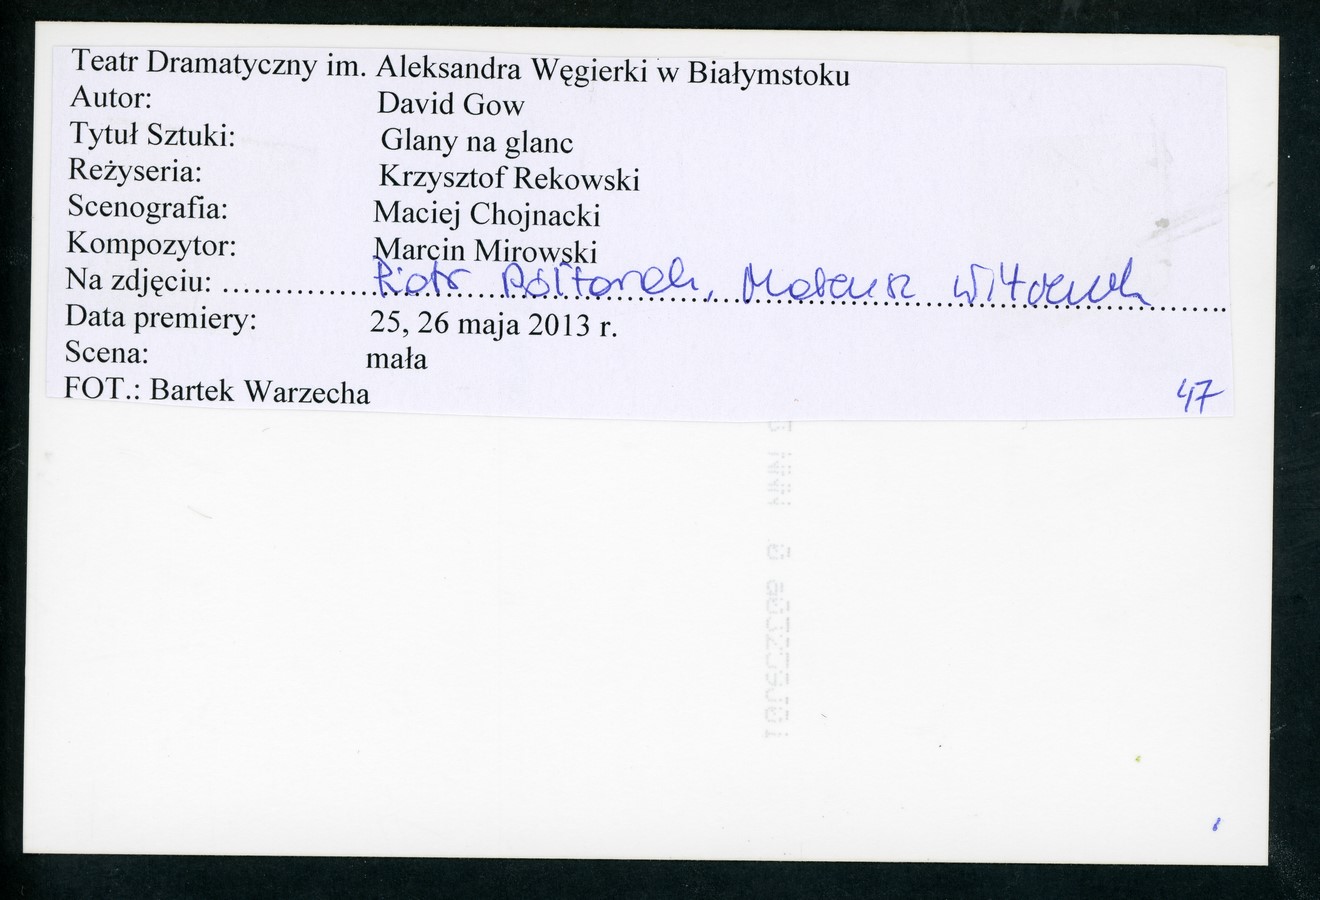 Teatr Dramatyczny im. Aleksandra Węgierki w Białymstoku
Autor: David Gow
Tytuł Sztuki: Glany na glanc
Reżyseria: Krzysztof Rekowski
Scenografia: Maciej Chojnacki
Kompozytor: Marcin Mirowski
Na zdjęciu: Piotr Półtorak, Mateusz Witczuk
Data premiery: 25, 26 maja 2013 r.
Scena: mała
FOT.: Bartek Warzecha
47